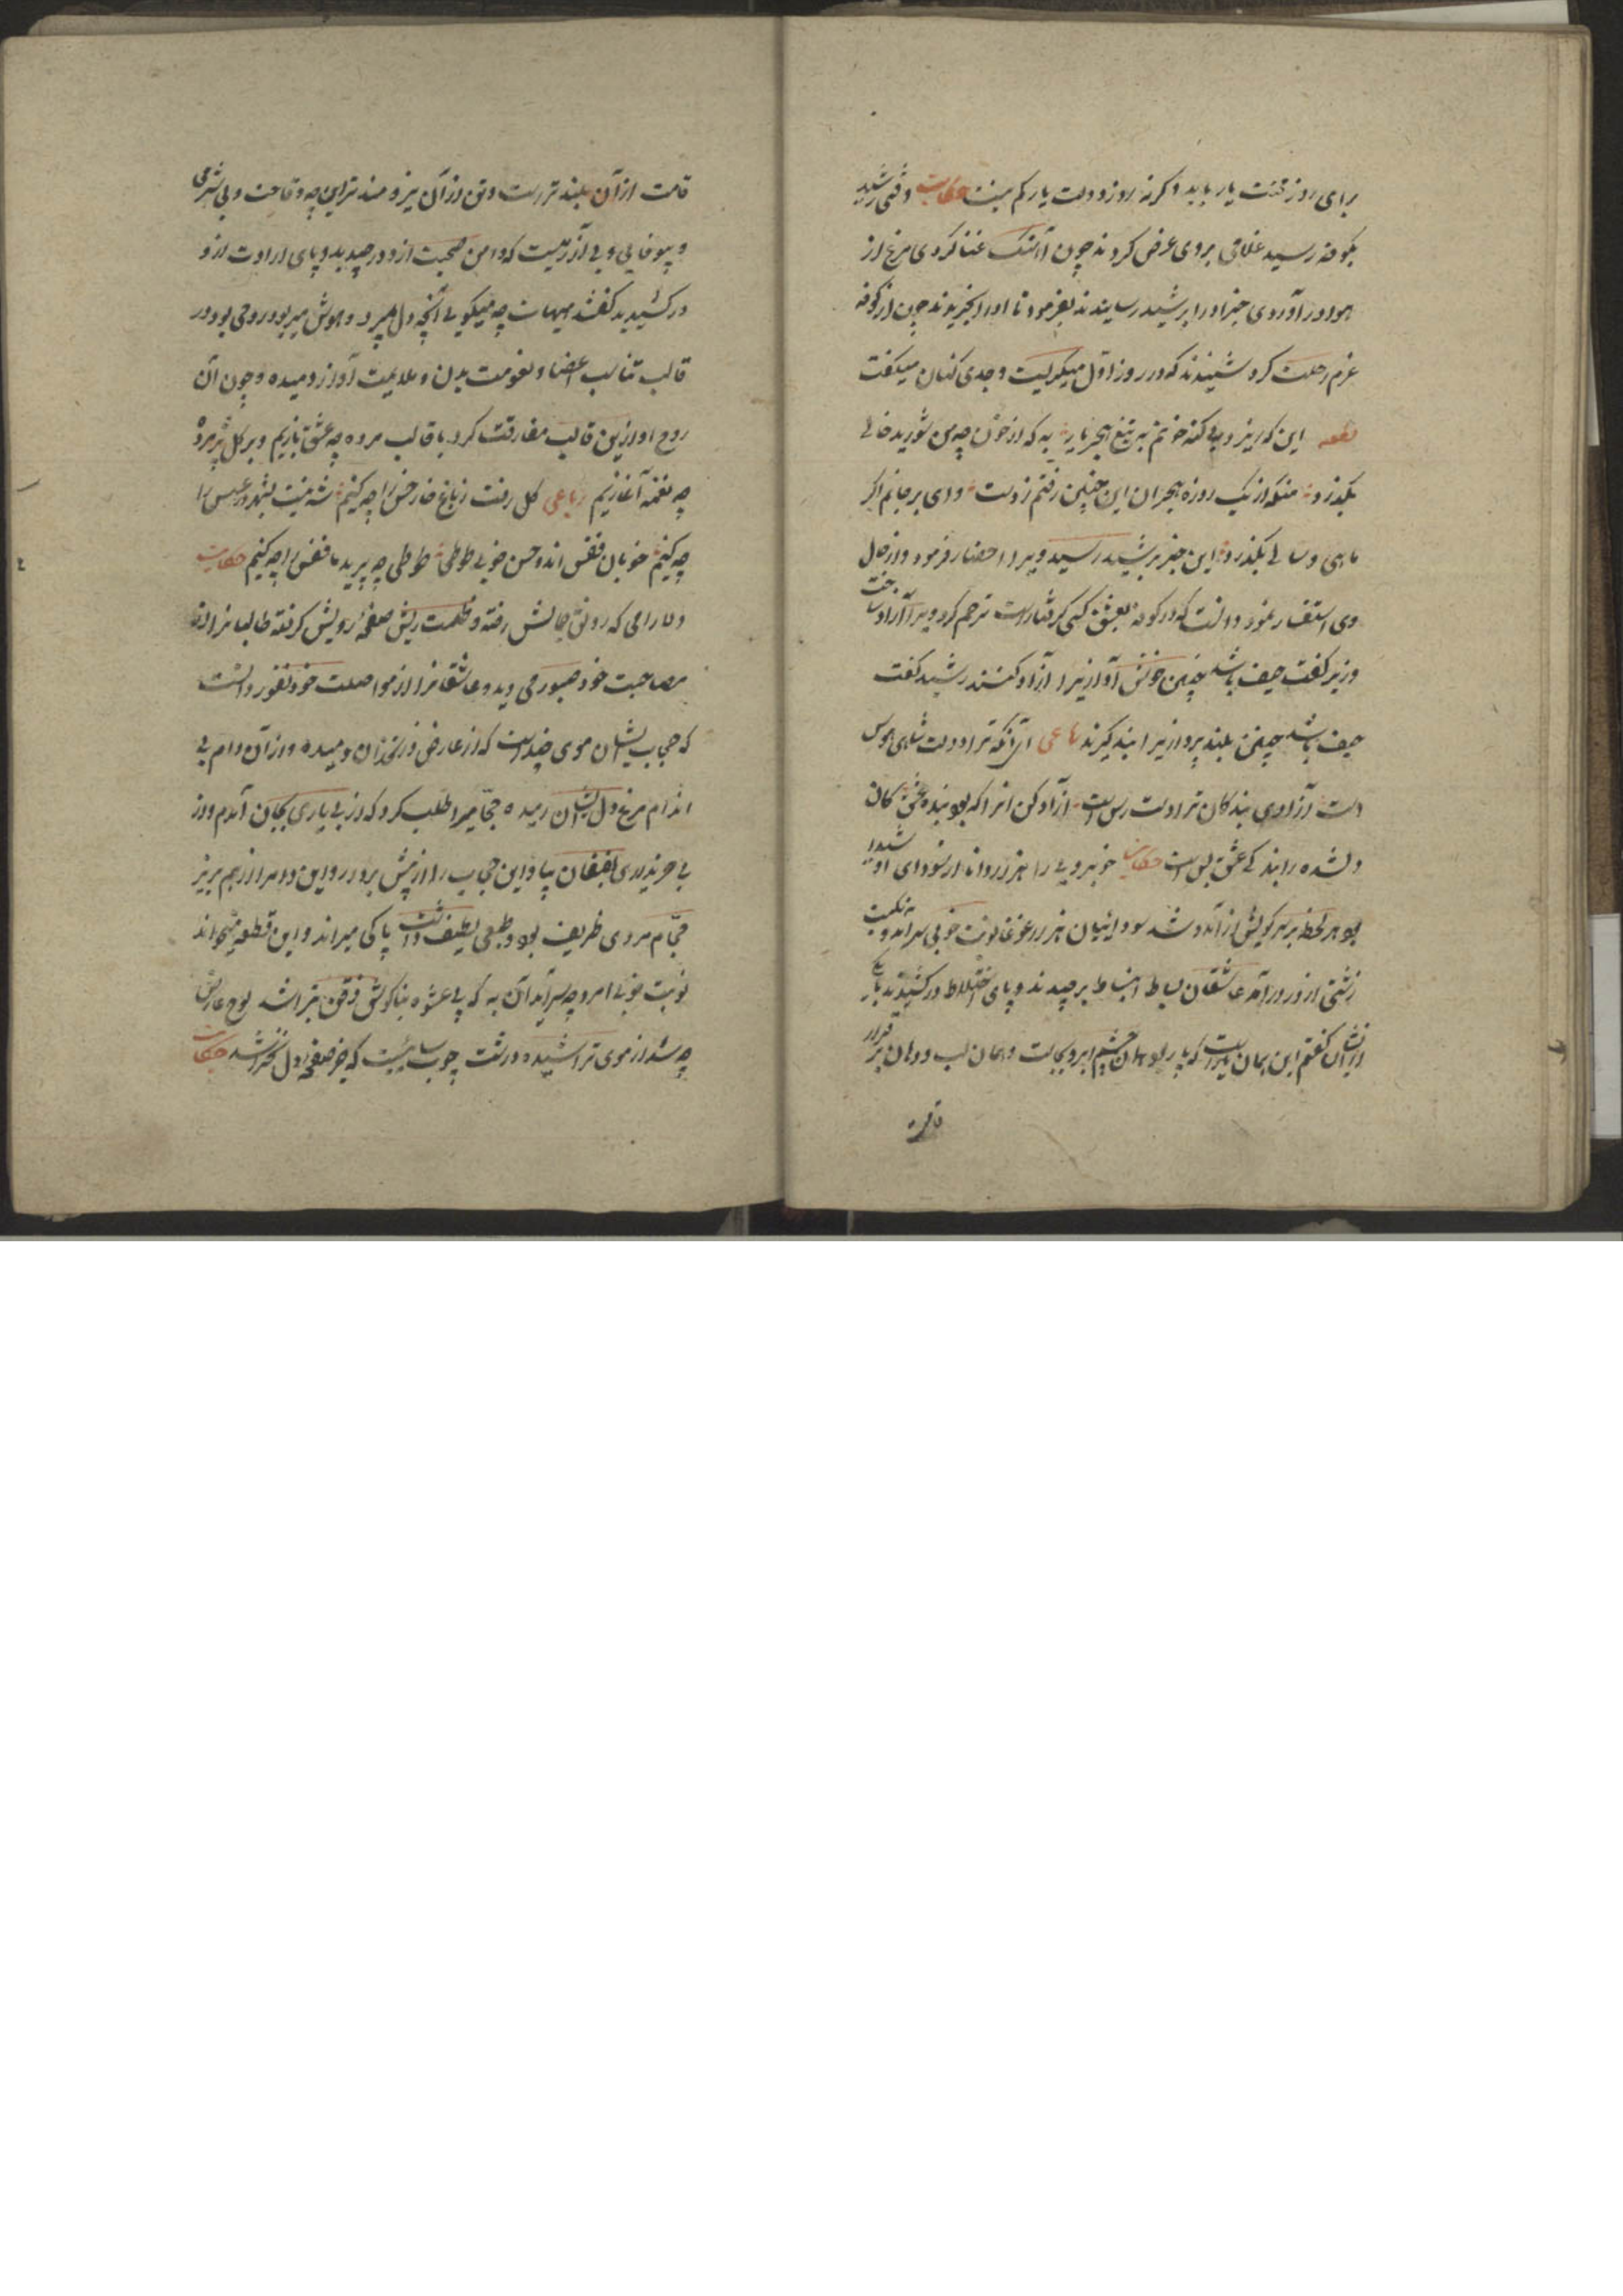 برای روز محنت یار باید وگرنه روز دولت یار کم نیست حکایت وقتی رشید
بکوفه رسید غلامی بروی عرض کردند چون آهنگ غنا کردی مرغ از
هوا در آوردی خبر او را برشید رسانیدند بفرمود تا او را بخریدند چون از کوفه
عزم رحلت کرد شنیدند که در روز اول میگریست و حدی کنان میگفت
قطعه این که ریزد بیگنه خونم به تیغ هجر یار به که از خون چو من شوریده حالی
بگذرد منکه از یک روزه هجران این چنین رفتم ز دست وای بر جانم اگر
ماهی و سالی بگذرد این خبر برشید رسید ویرا احضار فرمود و از حال
وی استفسار نمود دانست که در کوفه بعشق کسی گرفتار است ترحم کرد ویرا آزاد ساخت
وزیر گفت حیف باشد چنین خوش آوازیرا آزاد کنند رشید گفت
حیف باشد چنین بلند پروازیرا بند گیرند رباعی آنرا که ترا دولت شاهی هوس
است آزادی بندگان ترا دست رس است آزاد کن انرا که بود بنده بخت کان
دلشده را بندگی عشق بس است حکایت خوبرویی را هزار دانا از سودای او شیدا
بود هر لحظه بر سر کویش از آمد و شد سودائیان هزار غوغا نوبت خوبی سر آمد و نکبت
زشتی از در درآمد عاشقان بساط انبساط برچیدند و پای اختلاط درکشیدند با یکی
از ایشان گفتم این همان یار است که پار بود همان چشم و ابرو بجاست و همان لب و دهان برقرار
قامت
قامت از آن بلندتر است و تن از آن نیرومندتر این چه وقاحت و بی شرمی
و بیوفایی و بی آزرمیست که دامن صحبت ازو درچیدید و پای ارادت ازو
درکشیدید گفتند هیهات چه میگویی آنچه دل میبرد و هوش میربود روحی بود در
قالب تناسب اعضا و نعومت بدن و ملایمت آواز دمیده و چون آن
روح او ازین قالب مفارقت کرد با قالب مرده چه عشق بازیم و بر گل پژمرده
چه نغمه آغازیم رباعی گل رفت ز باغ خار و خس را چه کنیم شه نیست بشهر در عسس را
چه کنیم خوبان قفس اند و حسن خوبی طوطی طوطی چو پرید ما قفس را چه کنیم حکایت
دلارامی که رونق جمالش رفته و ظلمت ریش صفحه رویش گرفته طالبانرا از
مصاحبت خود صبور می دید و عاشقانرا از مواصلت خود نفور دانست
که حجاب ایشان موی چند است که از عارض و زنخدان دمیده و از آن دام بی
اندام مرغ دل ایشان رمیده حجامیرا طلب کرد که از بی یاری بجان آمدم و از
بی خریداری بفغان بیا و این حجاب را از پیش بردار و این دام را از هم بریز
حجام مردی ظریف بود و طبعی لطیف داشت پاکی میراند و این قطعه میخواند
نوبت خوبی امرد چو سرآید آن به که پی عشوه بناگوش و ذقن بتراشد لوح عارض
چو شد از موی تراشیده درشت چوب سائیست که جز صفحه دل نخراشد حکایت